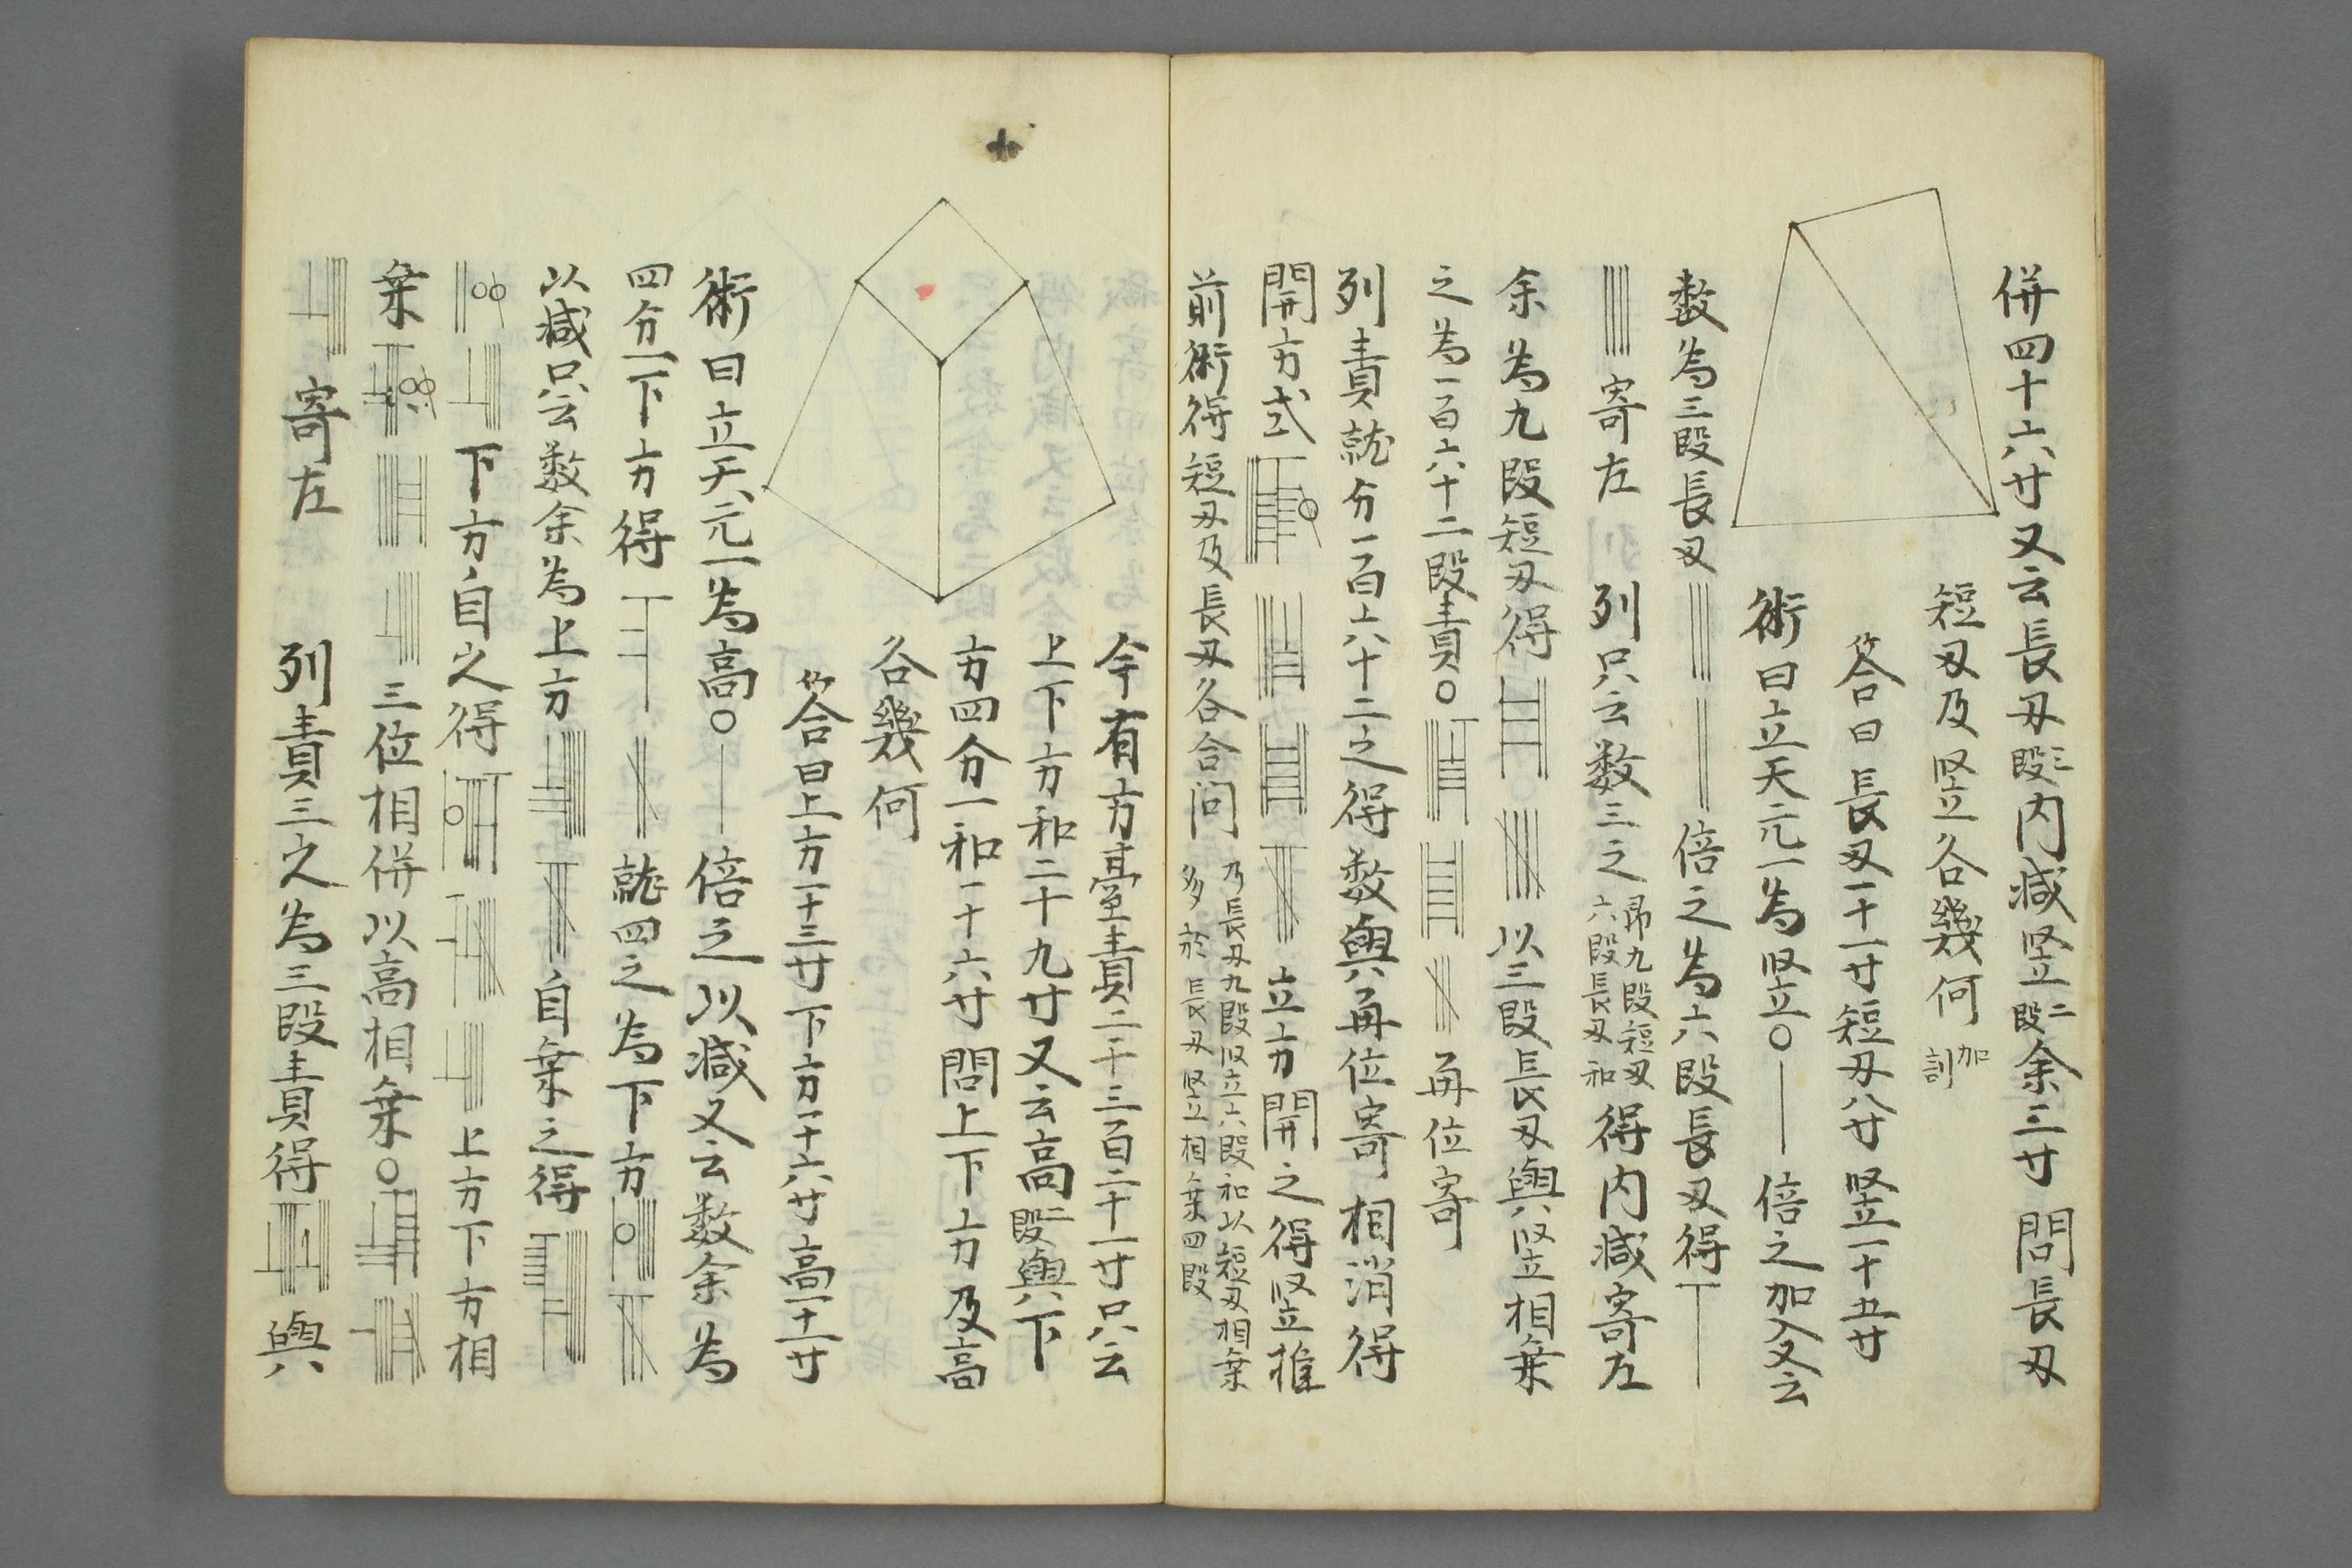 併四十六寸又云長刄三段内减竪二段余三寸問長刄
短刄及竪各幾何
答曰長刄一十一寸短刄八寸竪一十五寸
術曰立天元一為竪〇
倍之加入又云
数為三段長刄
倍之為六段長刄得
寄左
列只云数三之
昻九段短刄
六段長刄和
得内减寄左
余為九段短刄得
以三段長刄與竪相乗
之為一百六十二段責〇
再位寄
列責就分一百六十二之得数與再位寄相消得
開方式
立方開之得竪推
前術得短刄及長刄各合問
乃長刄九段竪六段和以短刄相乗
多於長刄竪相乗四段
今有方臺責二千三百二十一寸只云
上下方和二十九寸又云高二段與下
方四分一和一十六寸問上下方及高
各幾何
答曰上方一十三寸下方一十六寸高一十一寸
術曰立天元一為高〇
倍之以减又云数余為
四分一下方得
就四之為下方
以减只云数余為上方
自乗之得
下方自之得
上方下方相
乗
三位相併以高相乗〇
寄左
列責三之為三段責得
與